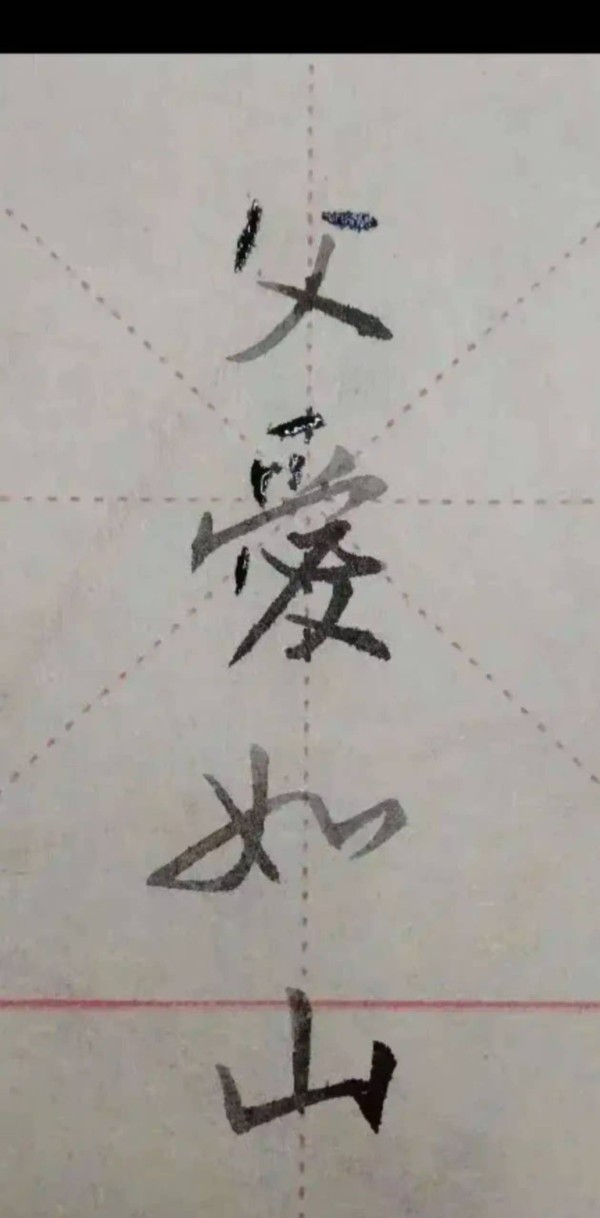 父爱如山